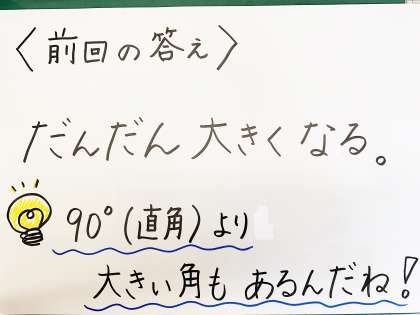 〈前回の答え〉
だんだん大きくなる。
90°(直角)より
大きい角もあるんだね!